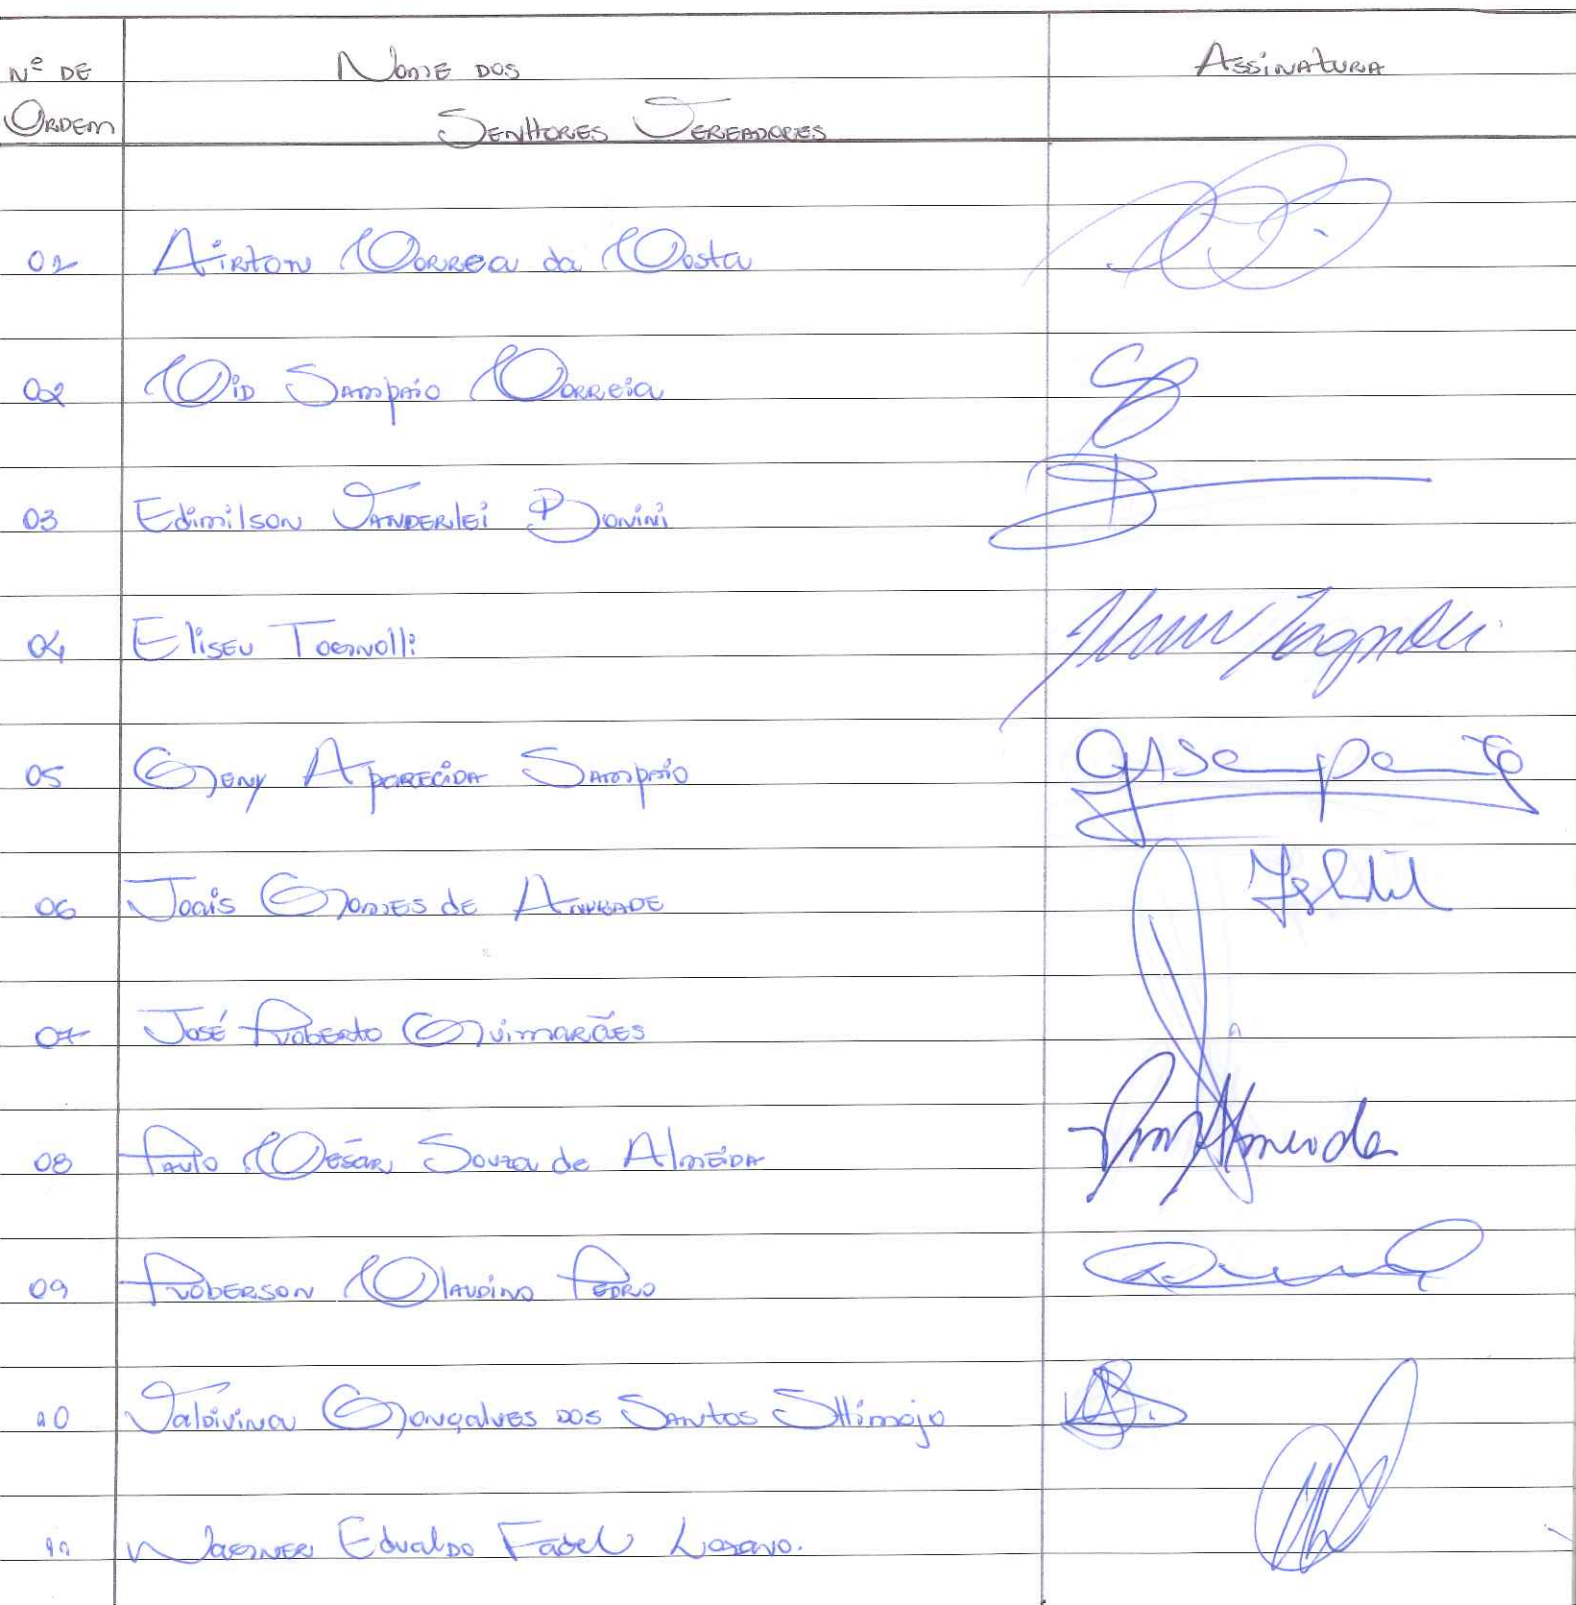 Nº DE NOME DOS ASSINATURA
ORDEM SENHORES VEREADORES
01 Airton Correa da Costa
02 Cid Sampaio Correia
03 Edimilson Vanderlei Bonini
04 Eliseu
05 Geny Aparecida Sampaio
06 Gomes de Andrade
07 José Roberto Guimarães
08 Paulo César Souza de Almeida Almeida
09 Roberson Claudino Pedro
10 Valdivina Gonçalves dos Santos Shimojo
11 Wagner Edvaldo Fadel Lozano.